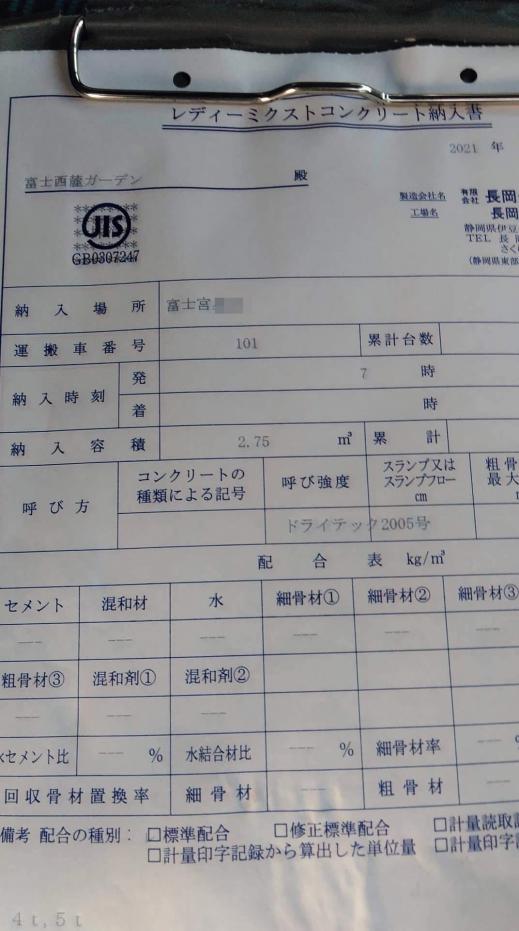 レディーミクストコンクリート納入書
2021 年
富士西麓ガーデン 殿
製造会社名 有限会社 長岡
工場名 長岡
静岡県伊豆
TEL 長岡
さく
(静岡県東部
JIS
GB0307247
納入場所 富士宮
運搬車番号 101 累計台数
納入時刻 発 7 時
着 時
納入容積 2.75 m³ 累計
呼び方 コンクリートの種類による記号 呼び強度 スランプ又はスランプフロー cm 粗骨 最大
ドライテック2005号
配合表 kg/m³
セメント 混和材 水 細骨材① 細骨材② 細骨材③
--- --- --- --- --- ---
粗骨材③ 混和剤① 混和剤②
--- --- ---
セメント比 --- % 水結合材比 --- % 細骨材率 ---
回収骨材置換率 細骨材 --- 粗骨材 ---
備考 配合の種別：□標準配合 □修正標準配合 □計量読取
□計量印字記録から算出した単位量 □計量印字
4t,5t